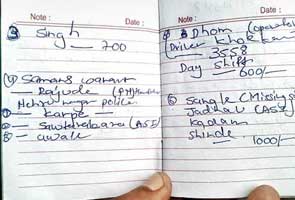 Note : Date :
③ Singh
— 700
④ Samans warrant
— Rajude (PH)
Nehru nagar police
① — Karpe —
② — (ASI)
③ — awale
Note : Date :
Dhom (operator
Driver
— 3558
Day shift
— 600/—
⑤ Sangle (Missing
Jadhav (ASI
Kadam
Shinde
1000/—